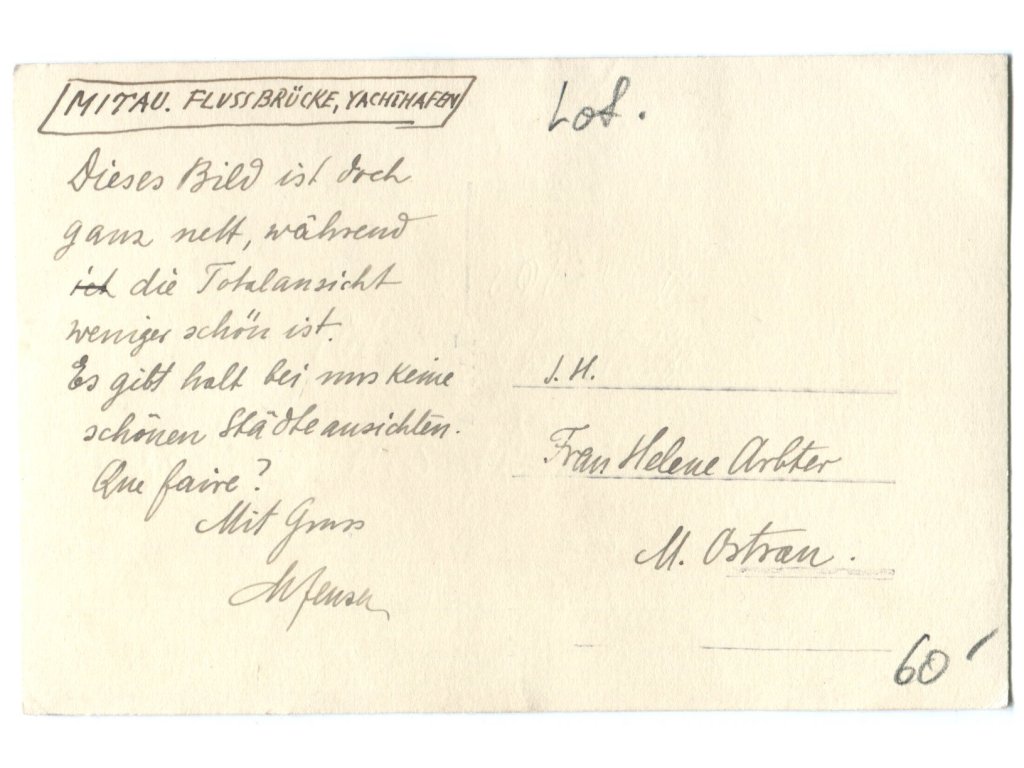 MITAU. FLUSSBRÜCKE, YACHTHAFEN
Dieses Bild ist doch
ganz nett, während
ich die Totalansicht
weniger schön ist.
Es gibt halt bei uns keine
schönen Städteansichten.
Que faire?
Mit Gruss
Lot.
I.H.
Frau Helene Arbter
M. Ostrau.
60